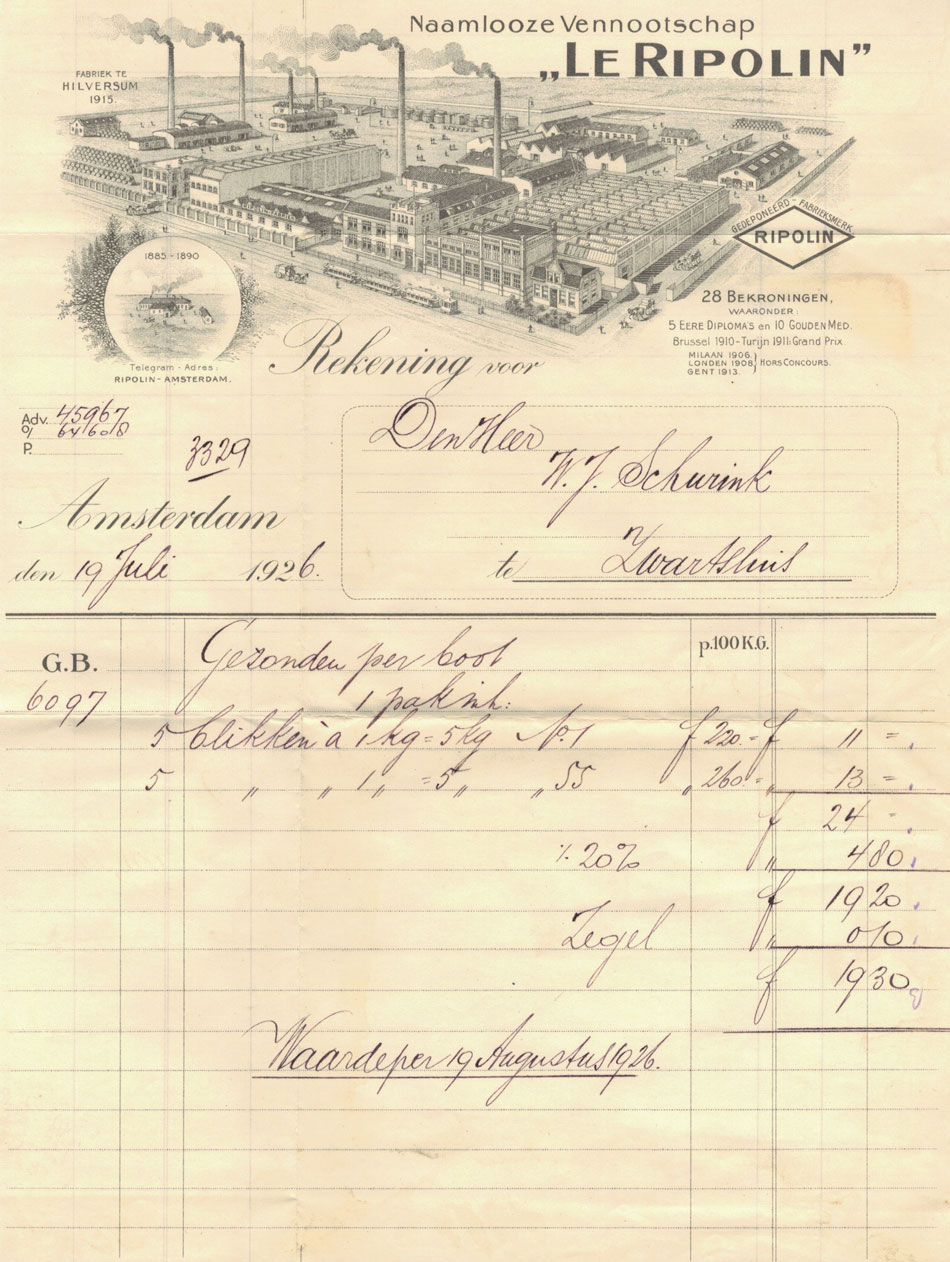 Naamlooze Vennootschap
„LE RIPOLIN”
FABRIEK TE
HILVERSUM
1915.
GEDEPONEERD - FABRIEKSMERK
RIPOLIN
1885 - 1890
28 BEKRONINGEN,
WAARONDER:
5 EERE DIPLOMA'S en 10 GOUDEN MED.
Brussel 1910 - Turijn 1911: Grand Prix
MILAAN 1906.
LONDEN 1908. HORS CONCOURS.
GENT 1913.
Telegram - Adres:
RIPOLIN - AMSTERDAM.
Rekening voor
Adv. 45967
O/
P.
3329
Den Heer
W. J. Schurink
te Zwartsluis
Amsterdam
den 19 Juli 1926.
G.B. Gezonden per boot p. 100 K.G.
6097 1 pak inh:
5 blikken à 1 kg = 5 kg No. 1 f 220.= f 11 =
5 „ „ 1 „ = 5 „ „ 55 „ 260.= „ 13 =
f 24 -
% 20% „ 480
f 1920
Zegel „ 010
f 1930
Waarde per 19 Augustus 1926.